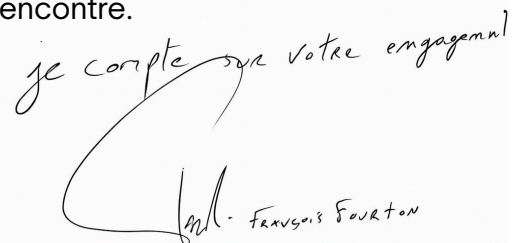 encontre.
je compte sur votre engagement
François Fourton